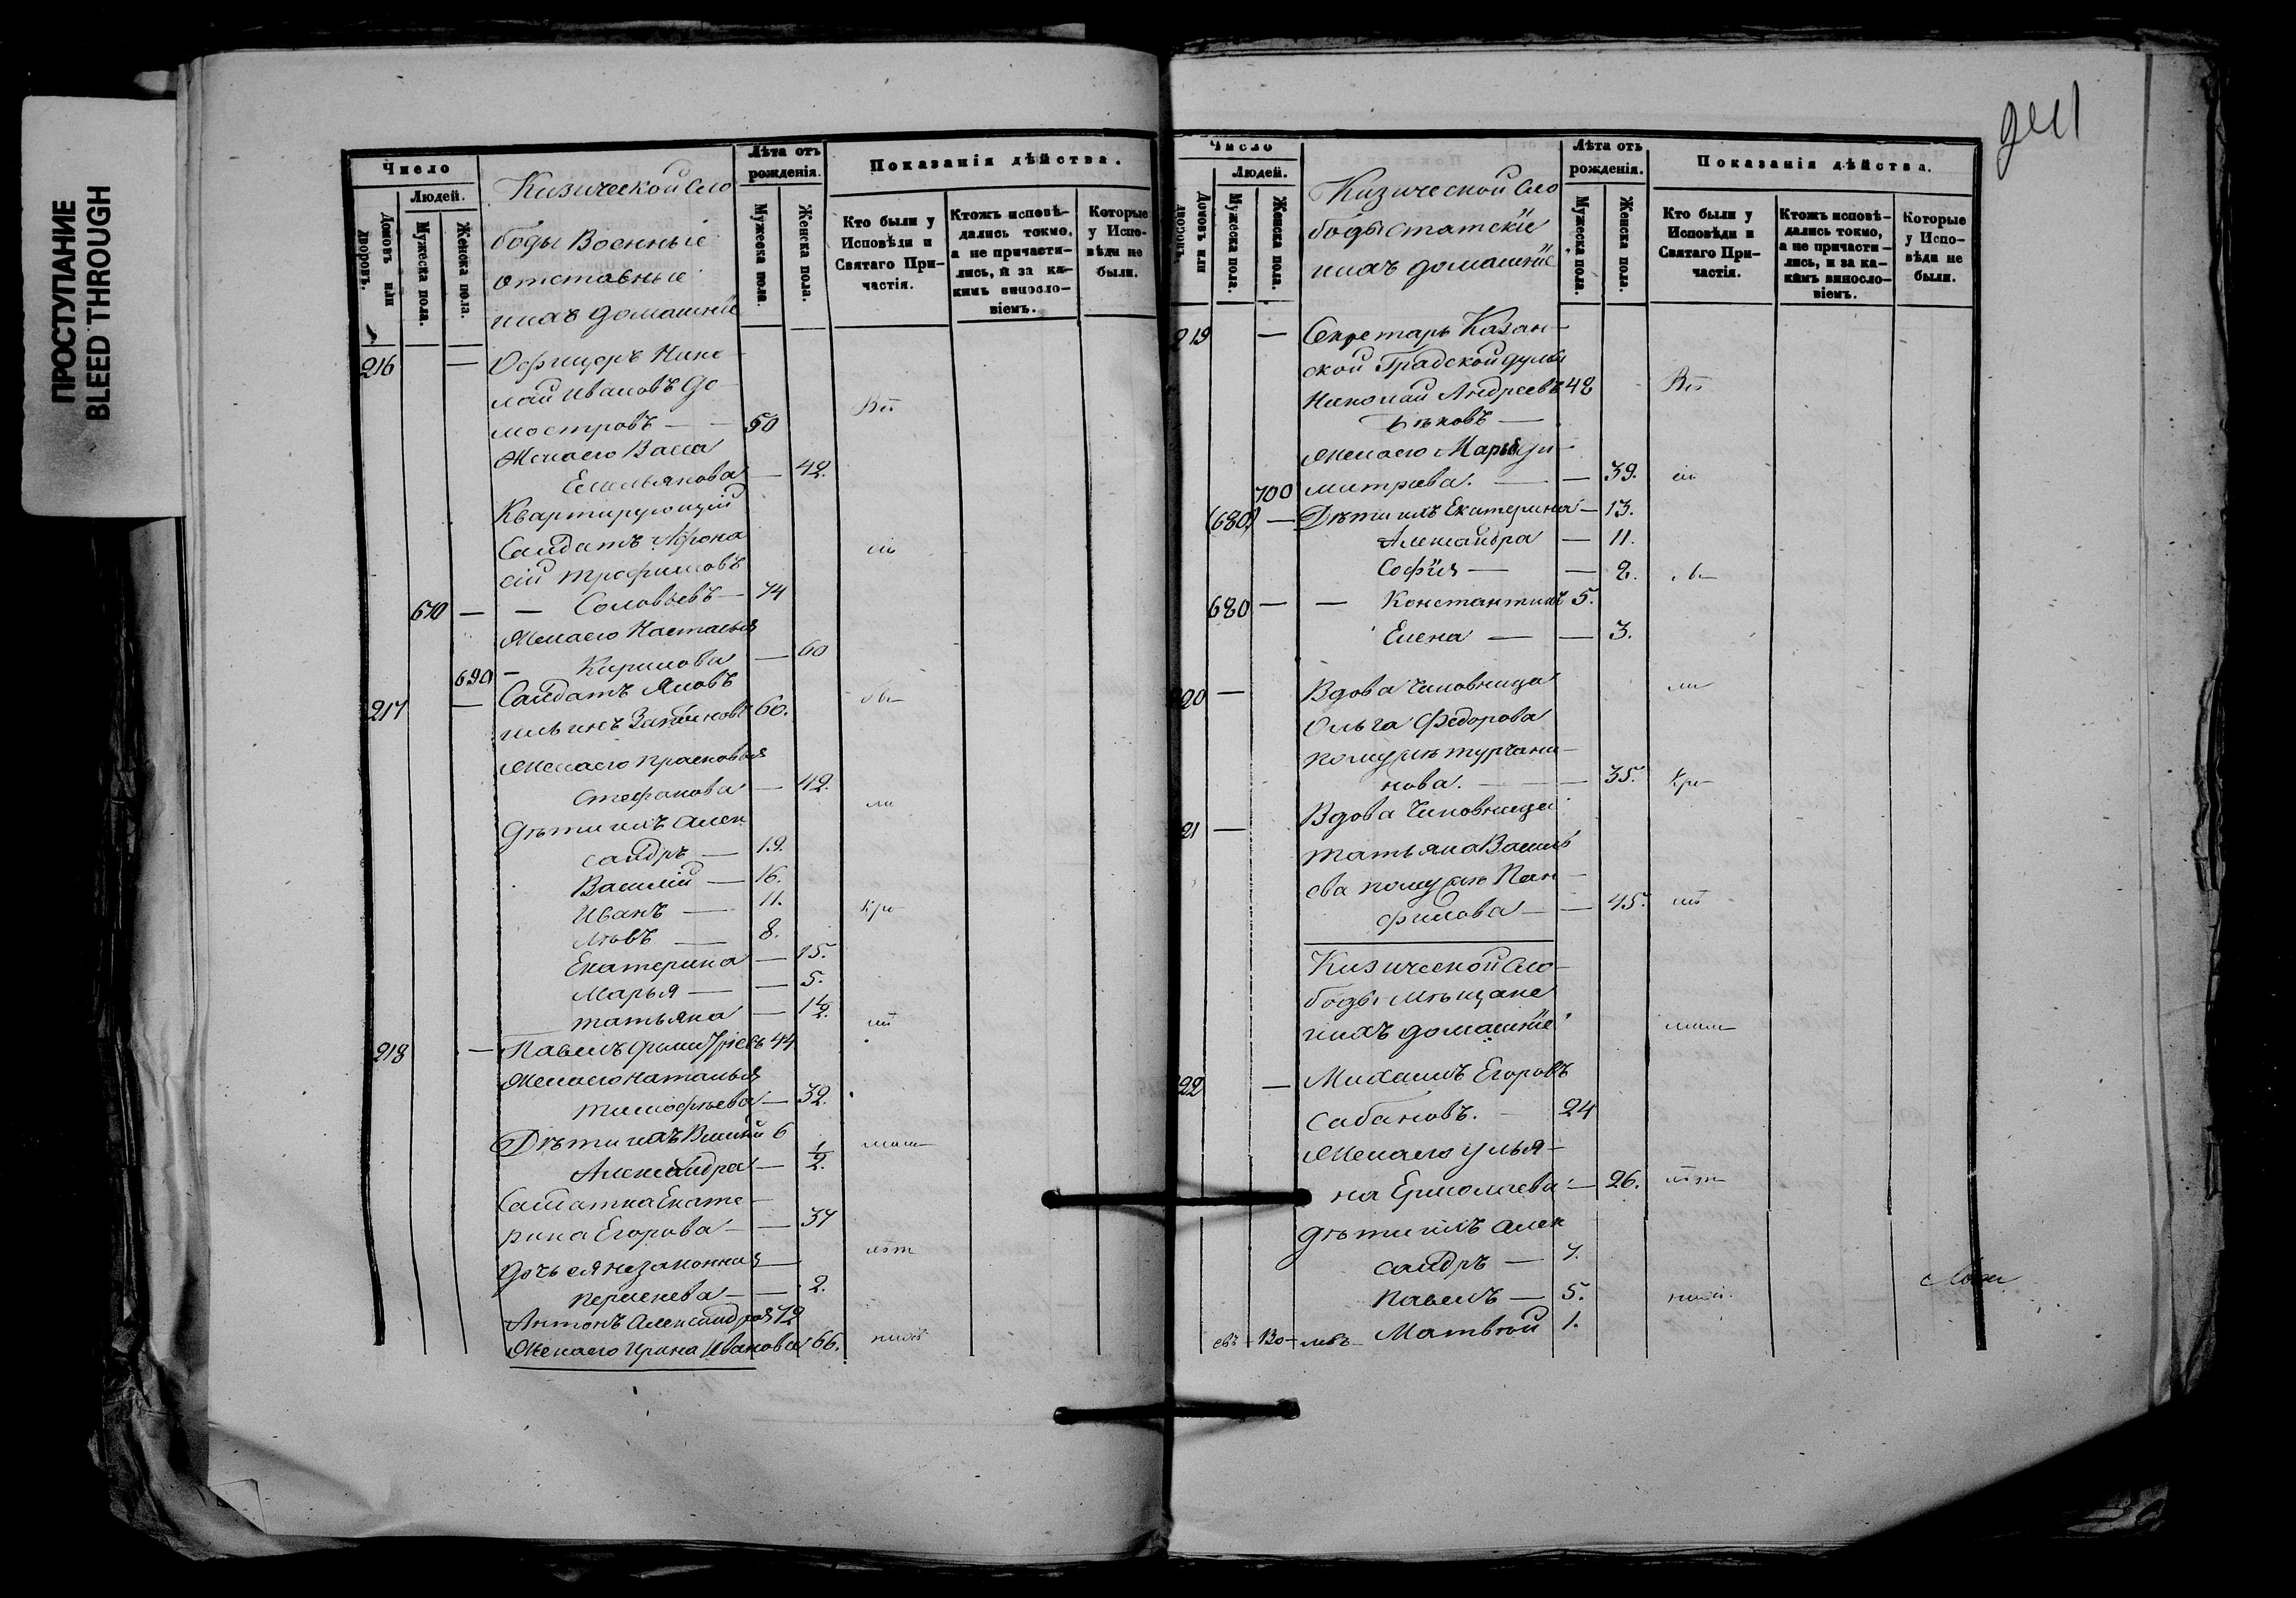 ПРОСТУПАНИЕ
BLEED THROUGH
Число
Людей.
Домовъ или дворовъ.
Мужеска пола.
Женска пола.
Кизической Сло
боды Военные
отставные
и ихъ домашніе
Лѣта отъ
рожденія.
Мужеска пола.
Женска пола.
Показанія дѣйства.
Кто были у
Исповѣди и
Святаго При-
частія.
Ктожъ исповѣ-
дались токмо,
а не причасти-
лись, и за ка-
кимъ винослo-
віемъ.
Которые
у Испо-
вѣди не
были.
216 — Офицеръ Нико
лай Ивановъ До
мостровъ — 50
Жена его Васса
Емельянова — 42.
Квартирующій
Салдатъ Афона
сій Трофимовъ
670 — — Соловьевъ — 74
Жена его Настасья
690 — Кирилова — 60
217 — Салдатъ Яковъ
Ильинъ 60.
Жена его Прасковья
Стефанова — 42.
Дѣти ихъ Алек
сандръ — 19.
Василій — 16.
Иванъ — 11.
Львъ — 8.
Екатерина — 15.
Марья — 5.
Татьяна — 1½
218 — Павелъ 44
Жена его Наталья
Тимофѣева — 32.
Дѣти ихъ 6
Александра — ½.
Салдатка Екате-
рина Егорова — 37
Дочь ея незаконная —
2.
Антонъ Александровъ 72
Жена его Ирина Иванова 66.
Число
Людей.
Домовъ или дворовъ.
Мужеска пола.
Женска пола.
Кизической Сло
боды Статскіе
и ихъ домашніе
Лѣта отъ
рожденія.
Мужеска пола.
Женска пола.
Показанія дѣйства.
Кто были у
Исповѣди и
Святаго При-
частія.
Ктожъ исповѣ-
дались токмо,
а не причасти-
лись, и за ка-
кимъ винослo-
віемъ.
Которые
у Испо-
вѣди не
были.
219 — Секретарь Казан-
ской Градской думы
Николай Андреевъ 42
Бѣковъ —
Жена его Марья Ди-
700 митріева. — 39.
(680) — Дѣти ихъ Екатерина — 13.
Александра — 11.
Софія — 2.
680 — — Константинъ 5.
Елена — 3.
20 — Вдова Чиновница
Ольга Федорова
по мужѣ Турчани-
нова. — 35.
21 — Вдова Чиновница
Татьяна Василь
ева по мужѣ Пан-
филова — 45.
Кизической Сло-
боды Мѣщане
и ихъ домашніе
22 — Михаилъ Егоровъ
Сабановъ. — 24
Жена его Улья-
на Ермолаева — 26.
Дѣти ихъ Алек
сандръ — 7.
Павелъ — 5.
Матвѣй 1.